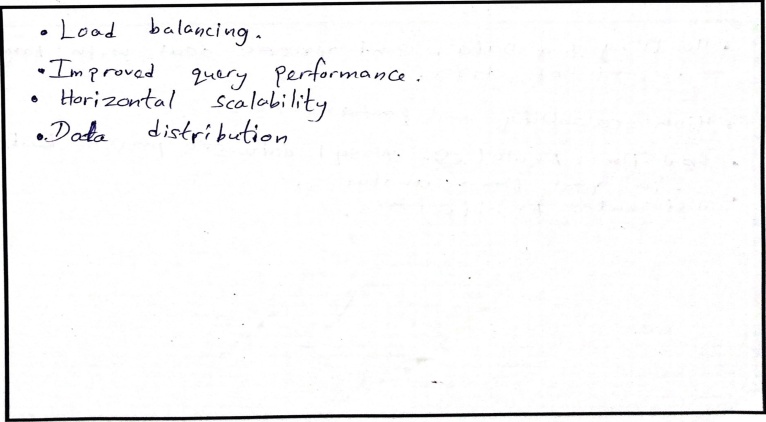 • Load balancing.
• Improved query performance.
• Horizontal scalability
• Data distribution